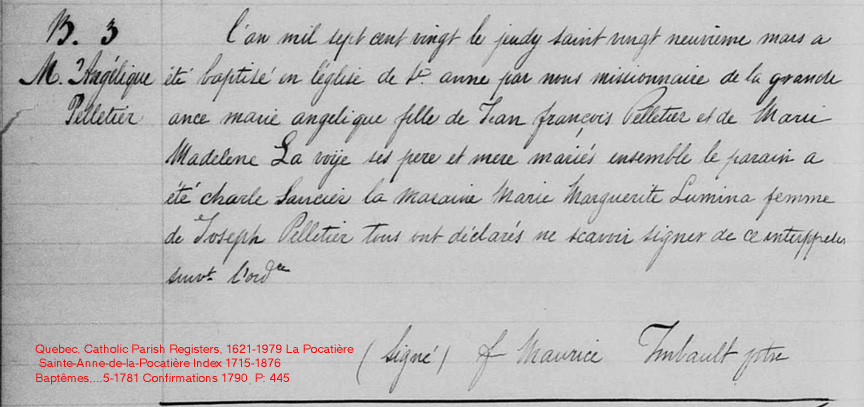 B. 3
M. Angélique
Pelletier
L'an mil sept cent vingt le jeudy saint vingt neuvieme mars a
été baptisé en l'église de Ste anne par nous missionnaire de la grande
ance marie angelique fille de Jean françois Pelletier et de Marie
Madelene La voije ses pere et mere mariés ensemble le parain a
été charle Saucier la maraine Marie Marguerite Lumina femme
de Joseph Pelletier tous ont déclarés ne scavoir signer de ce interppelés
suivt l'ordce
(signé) f Maurice Imbault ptre
Quebec, Catholic Parish Registers, 1621-1979 La Pocatière
Sainte-Anne-de-la-Pocatière Index 1715-1876
Baptêmes,...5-1781 Confirmations 1790, P: 445